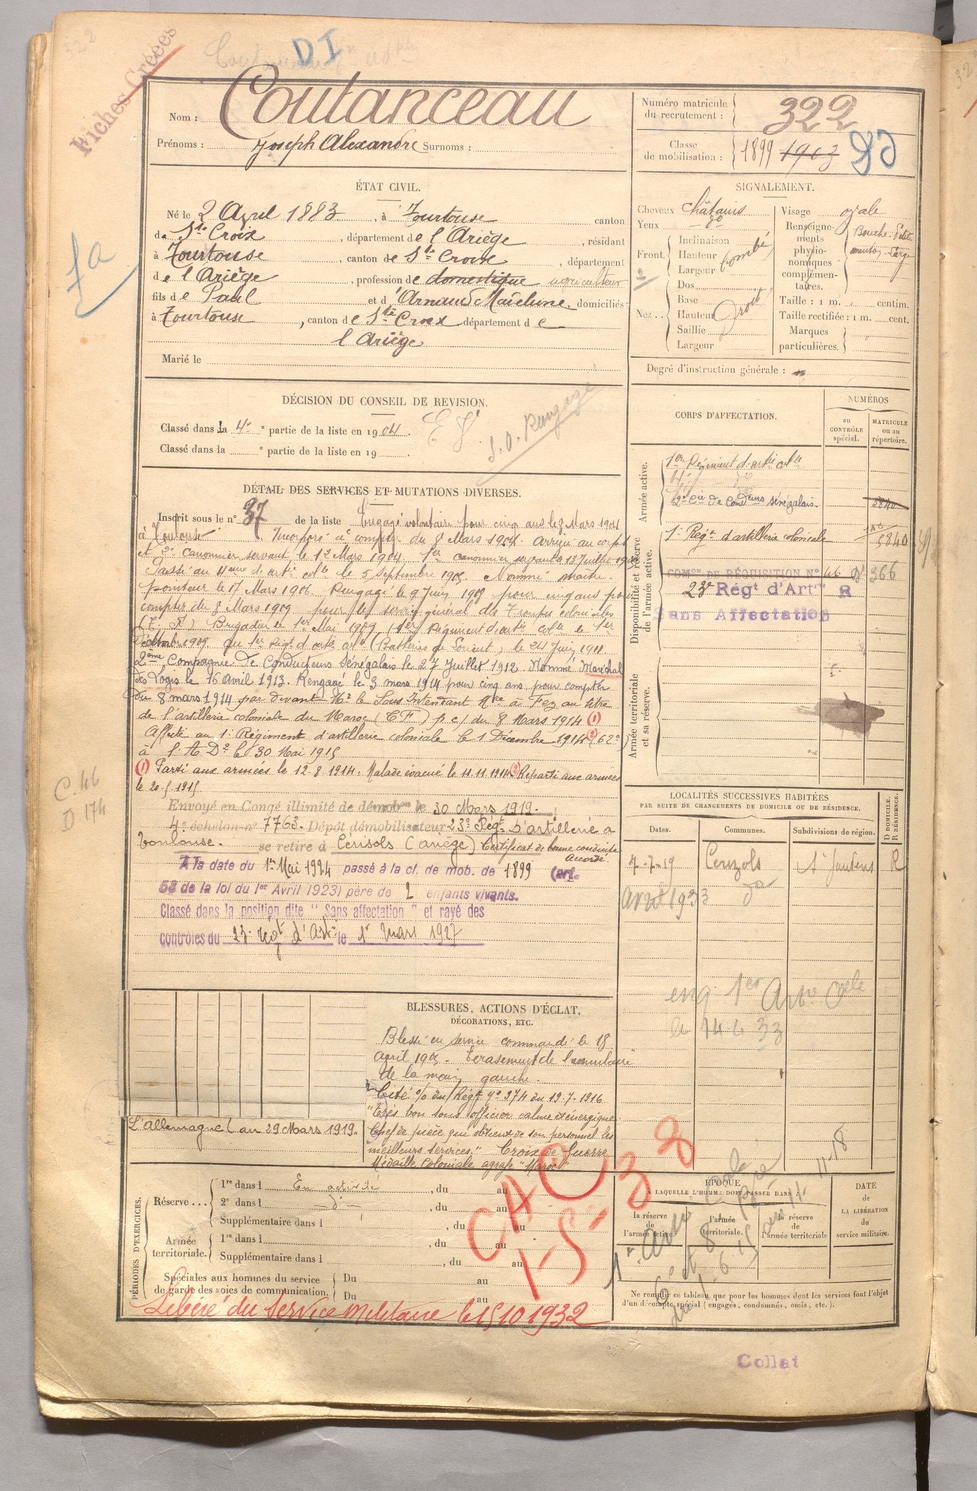 Fiches Créées
DI
Nom : Coutanceau
Prénoms : Joseph Alexandre Surnoms :
Numéro matricule du recrutement : 322
Classe de mobilisation : 1899 1903
ÉTAT CIVIL.
Né le 2 Avril 1883, à Tourtouse canton
de Ste Croix, département de l'Ariège, résidant
à Tourtouse, canton de Ste Croix, département
de l'Ariège, profession de domestique agriculteur
fils de Paul et d'Arnaud Marceline domiciliés
à Tourtouse, canton de Ste Croix département de
l'Ariège
Marié le
SIGNALEMENT.
Cheveux châtains
Yeux do
Front. Inclinaison
Hauteur bombé
Largeur
Nez. Dos
Base
Hauteur Droit
Saillie
Largeur
Visage ovale
Renseignements physionomiques complémentaires. Bouche Petite menton Large
Taille : 1 m. centim.
Taille rectifiée : 1 m. cent.
Marques particulières.
Degré d'instruction générale :
DÉCISION DU CONSEIL DE REVISION.
Classé dans la 4e partie de la liste en 1904.
Classé dans la partie de la liste en 19
DÉTAIL DES SERVICES ET MUTATIONS DIVERSES.
Inscrit sous le n° 37 de la liste Engagé volontaire pour cinq ans le 8 Mars 1904
à Toulouse Incorporé à compter du 8 Mars 1904. Arrivé au corps
et 2e canonnier servant le 12 Mars 1904. 1er canonnier servant le 13 Juillet
Passé au le 5 Septembre 1905. Nommé maître
pointeur le 17 Mars 1906. Rengagé le 9 Juin 1907 pour cinq ans pr
compter du 8 Mars 1909 pour le service général des Troupes coloniales
Brigadier le 1er Mai 1909 1er Régiment d'artie cole le 1er
Décembre 1909. au 1er Régt d'art. (Batterie de Lorient) le 24 Juin 1911.
2ème Compagnie de Conducteurs Sénégalais le 27 Juillet 1912. Nommé Maréchal
des Logis le 16 avril 1913. Rengagé le 3 mars 1914 pour cinq ans pour compter
du 8 mars 1914 par devant Mr le Sous Intendant Mre à Fez au titre
de l'artillerie coloniale du Maroc (C.F.) p.c. du 8 Mars 1914 (1)
Affecté au 1e Régiment d'artillerie coloniale le 1 Décembre 1914
à l'A D2 le 30 Mai 1915
(1) Parti aux armées le 12.8.1914. Malade évacué le 11.11.1914 Reparti aux armées
le 20.5.1915
Envoyé en Congé illimité de démobon le 30 Mars 1919.
4e échelon n° 7763. Dépôt démobilisateur 23e Régt d'artillerie à
Toulouse. se retire à Cérisols (Ariège) Certificat de bonne conduite
Accordé.
A la date du 1er Mai 1924 passé à la cl. de mob. de 1899 (art.
58 de la loi du 1er Avril 1923) père de 2 enfants vivants.
Classé dans la position dite "Sans affectation" et rayé des
contrôles du 23e régt d'Artie le 1er Mars 1927
C. 46
D 174
CORPS D'AFFECTATION.
NUMÉROS
au CONTRÔLE spécial.
MATRICULE ou au répertoire.
Armée active.
1er Régiment d'artie cole
2e Cie de Conducteurs sénégalais.
Disponibilité et réserve de l'armée active.
1e Régt d'artillerie coloniale 5840
COMon DE RÉQUISITION N° 46 366
23e Régt d'Artie R
Sans Affectation
Armée territoriale et sa réserve.
LOCALITÉS SUCCESSIVES HABITÉES
PAR SUITE DE CHANGEMENTS DE DOMICILE OU DE RÉSIDENCE.
Dates. Communes. Subdivisions de région. D DOMICILE. R RÉSIDENCE.
4-7-19 Cerizols St Gaudens R
Avril 1933 do
eng 1er Artie Cole
le 14 6 33
BLESSURES, ACTIONS D'ÉCLAT,
DÉCORATIONS, ETC.
Blessé en service commandé le 18
Avril 1905. Écrasement de l'annulaire
de la main gauche.
Cité o/ du Régt n° 274 du 19.7.1916
"Très bon sous officier calme et énergique
Chef de pièce qui obtient de son personnel les
meilleurs services." Croix de Guerre
Médaille Coloniale agrafe "Maroc"
L'Allemagne (au 29 Mars 1919.
CAC
1-5-38
PÉRIODES D'EXERCICES.
Réserve... 1re dans l En activité, du au
2e dans l do, du au
Supplémentaire dans l, du au
Armée territoriale. 1re dans l, du au
Supplémentaire dans l, du au
Spéciales aux hommes du service de garde des voies de communication. Du au
Du au
Libéré du Service Militaire le 15.10.1932
ÉPOQUE
À LAQUELLE L'HOMME DOIT PASSER DANS
la réserve de l'armée active
l'armée territoriale.
la réserve de l'armée territoriale
DATE de LA LIBÉRATION du service militaire.
Ne remplir ce tableau que pour les hommes dont les services font l'objet
d'un décompte spécial (engagés, condamnés, omis, etc.).
Collat